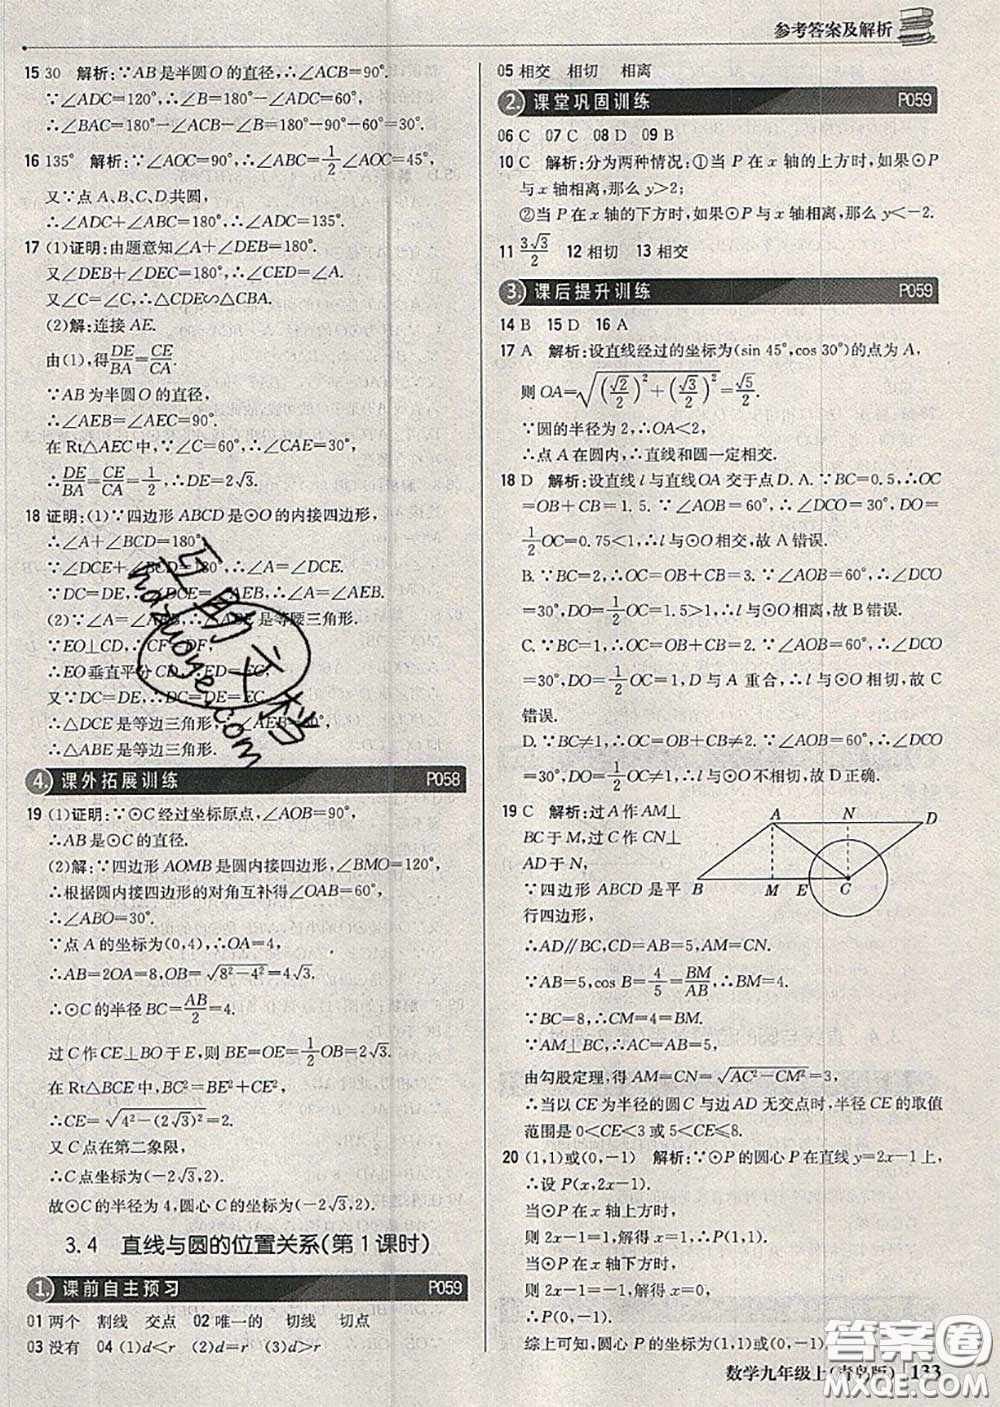 参考答案及解析
15 30 解析:∵AB是半圆O的直径,∴∠ACB=90°.
∵∠ADC=120°,∴∠B=180°-∠ADC=60°,
∴∠BAC=180°-∠ACB-∠B=180°-90°-60°=30°.
16 135° 解析:∵∠AOC=90°,∴∠ABC=1/2∠AOC=45°,
又∵点A、B、C、D共圆,
∴∠ADC+∠ABC=180°,∴∠ADC=135°.
17 (1)证明:由题意知∠A+∠DEB=180°.
又∠DEB+∠DEC=180°,∴∠CED=∠A.
又∵∠C=∠C,∴△CDE∽△CBA.
(2)解:连接AE.
由(1),得DE/BA=CE/CA.
∵AB为半圆O的直径,
∴∠AEB=∠AEC=90°.
在Rt△AEC中,∵∠C=60°,∴∠CAE=30°.
∴DE/BA=CE/CA=1/2,∴DE=2√3.
18 证明:(1)∵四边形ABCD是⊙O的内接四边形,
∴∠A+∠BCD=180°.
∵∠DCE+∠BCD=180°,∴∠A=∠DCE.
∵DC=DE,∴∠DCE=∠AEB,∴∠A=∠AEB.
(2)∵∠A=∠AEB,∴△ABE是等腰三角形.
∵EO⊥CD,∴CF=DF,
∴EO垂直平分CD,∴ED=EC.
又∵DC=DE,∴DC=DE=EC,
∴△DCE是等边三角形,∴∠AEB=60°,
∴△ABE是等边三角形.
4. 课外拓展训练 P058
19 (1)证明:∵⊙C经过坐标原点,∠AOB=90°,
∴AB是⊙C的直径.
(2)解:∵四边形AOMB是圆内接四边形,∠BMO=120°,
∴根据圆内接四边形的对角互补得∠OAB=60°,
∴∠ABO=30°.
∵点A的坐标为(0,4),∴OA=4,
∴AB=2OA=8,OB=√(8²-4²)=4√3.
∴⊙C的半径BC=AB/2=4.
过C作CE⊥BO于E,则BE=OE=1/2OB=2√3.
在Rt△BCE中,∵BC²=BE²+CE²,
∴CE=√(4²-(2√3)²)=2.
又C点在第二象限,
∴C点坐标为(-2√3,2).
故⊙C的半径为4,圆心C的坐标为(-2√3,2).
3.4 直线与圆的位置关系(第1课时)
1. 课前自主预习 P059
01 两个 割线 交点 02 唯一的 切线 切点
03 没有 04 (1)d<r (2)d=r (3)d>r
05 相交 相切 相离
2. 课堂巩固训练 P059
06 C 07 C 08 D 09 B
10 C 解析:分为两种情况:①当P在x轴的上方时,如果⊙P
与x轴相离,那么y>2;
②当P在x轴的下方时,如果⊙P与x轴相离,那么y<-2.
11 3√3/2 12 相切 13 相交
3. 课后提升训练 P059
14 B 15 D 16 A
17 A 解析:设直线经过的坐标为(sin 45°,cos 30°)的点为A,
则OA=√((√2/2)²+(√3/2)²)=√5/2.
∵圆的半径为2,∴OA<2,
∴点A在圆内,∴直线和圆一定相交.
18 D 解析:设直线l与直线OA交于点D. A. ∵BC=0.5,∴OC
=OB+CB=1.5. ∵∠AOB=60°,∴∠DCO=30°,OD=
1/2OC=0.75<1,∴l与⊙O相交,故A错误.
B. ∵BC=2,∴OC=OB+CB=3. ∵∠AOB=60°,∴∠DCO
=30°,OD=1/2OC=1.5>1,∴l与⊙O相离,故B错误.
C. ∵BC=1,∴OC=OB+CB=2. ∵∠AOB=60°,∴∠DCO
=30°,OD=1/2OC=1,D与A重合,∴l与⊙O相切,故C
错误.
D. ∵BC≠1,∴OC=OB+CB≠2. ∵∠AOB=60°,∴∠DCO
=30°,OD=1/2OC≠1,∴l与⊙O不相切,故D正确.
19 C 解析:过A作AM⊥
BC于M,过C作CN⊥
AD于N,
∵四边形ABCD是平
行四边形,
A N D
B M E C
∴AD∥BC,CD=AB=5,∴AM=CN.
∵AB=5,cos B=4/5=BM/AB,∴BM=4.
∵BC=8,∴CM=4=BM.
∵AM⊥BC,∴AC=AB=5,
由勾股定理,得AM=CN=√(AC²-CM²)=3,
∴当以CE为半径的圆C与边AD无交点时,半径CE的取值
范围是0<CE<3或5<CE≤8.
20 (1,1)或(0,-1) 解析:∵⊙P的圆心P在直线y=2x-1上,
∴设P(x,2x-1).
当⊙P在x轴上方时,
则2x-1=1,解得x=1,
∴P(1,1).
当⊙P在x轴下方时,
则2x-1=-1,解得x=0,
∴P(0,-1).
综上可知,圆心P的坐标为(1,1)或(0,-1)
数学九年级上(青岛版) 133
互助文档
hazuoye.com
答案圈
MXQE.COM